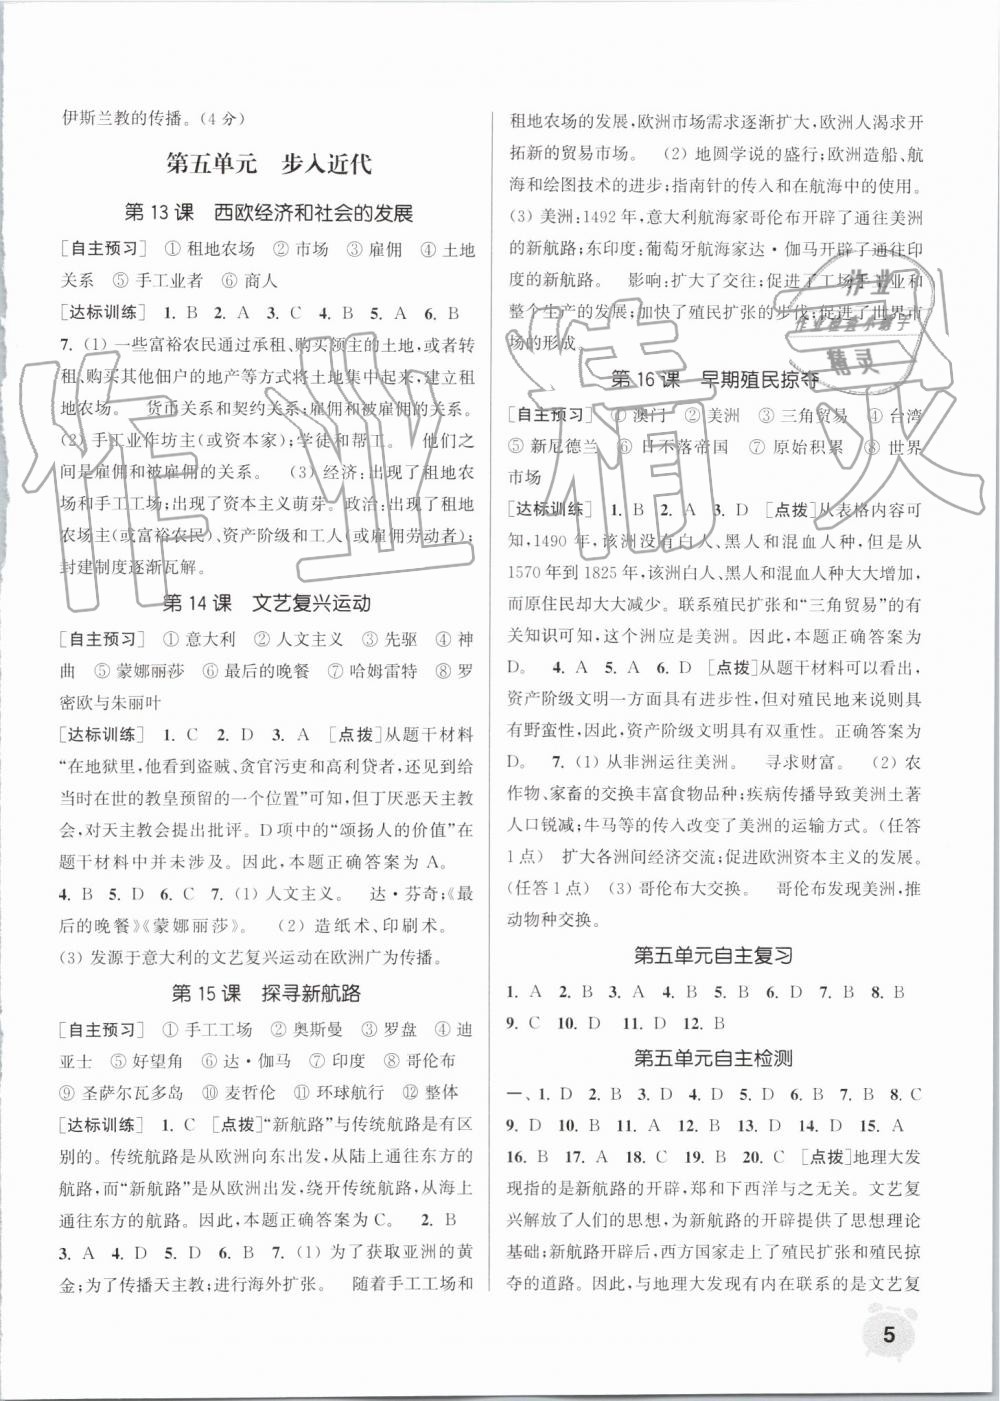 伊斯兰教的传播。(4 分)
第五单元　步入近代
第 13 课　西欧经济和社会的发展
[自主预习]　① 租地农场　② 市场　③ 雇佣　④ 土地
关系　⑤ 手工业者　⑥ 商人
[达标训练]　1. B　2. A　3. C　4. B　5. A　6. B
7. (1) 一些富裕农民通过承租、购买领主的土地,或者转
租、购买其他佃户的地产等方式将土地集中起来,建立租
地农场。　货币关系和契约关系;雇佣和被雇佣的关系。
(2) 手工业作坊主(或资本家);学徒和帮工。　他们之
间是雇佣和被雇佣的关系。　(3) 经济:出现了租地农
场和手工工场;出现了资本主义萌芽。政治:出现了租地
农场主(或富裕农民)、资产阶级和工人(或雇佣劳动者);
封建制度逐渐瓦解。
第 14 课　文艺复兴运动
[自主预习]　① 意大利　② 人文主义　③ 先驱　④ 神
曲　⑤ 蒙娜丽莎　⑥ 最后的晚餐　⑦ 哈姆雷特　⑧ 罗
密欧与朱丽叶
[达标训练]　1. C　2. D　3. A　[点拨]从题干材料
“在地狱里,他看到盗贼、贪官污吏和高利贷者,还见到给
当时在世的教皇预留的一个位置”可知,但丁厌恶天主教
会,对天主教会提出批评。D 项中的“颂扬人的价值”在
题干材料中并未涉及。因此,本题正确答案为 A。
4. B　5. D　6. C　7. (1) 人文主义。　达・芬奇;《最
后的晚餐》《蒙娜丽莎》。　(2) 造纸术、印刷术。
(3) 发源于意大利的文艺复兴运动在欧洲广为传播。
第 15 课　探寻新航路
[自主预习]　① 手工工场　② 奥斯曼　③ 罗盘　④ 迪
亚士　⑤ 好望角　⑥ 达・伽马　⑦ 印度　⑧ 哥伦布
⑨ 圣萨尔瓦多岛　⑩ 麦哲伦　⑪ 环球航行　⑫ 整体
[达标训练]　1. C　[点拨]“新航路”与传统航路是有区
别的。传统航路是从欧洲向东出发,从陆上通往东方的
航路,而“新航路”是从欧洲出发,绕开传统航路,从海上
通往东方的航路。因此,本题正确答案为 C。　2. B
3. A　4. D　5. B　6. B　7. (1) 为了获取亚洲的黄
金;为了传播天主教;进行海外扩张。　随着手工工场和
租地农场的发展,欧洲市场需求逐渐扩大,欧洲人渴求开
拓新的贸易市场。　(2) 地圆学说的盛行;欧洲造船、航
海和绘图技术的进步;指南针的传入和在航海中的使用。
(3) 美洲:1492 年,意大利航海家哥伦布开辟了通往美洲
的新航路;东印度:葡萄牙航海家达・伽马开辟了通往印度
的新航路。　影响:扩大了交往;促进了工场手工业和
整个生产的发展;加快了殖民扩张的步伐;促进了世界市
场的形成。
第 16 课　早期殖民掠夺
[自主预习]　① 澳门　② 美洲　③ 三角贸易　④ 台湾
⑤ 新尼德兰　⑥ 日不落帝国　⑦ 原始积累　⑧ 世界
市场
[达标训练]　1. B　2. A　3. D　[点拨]从表格内容可
知,1490 年,该洲没有白人、黑人和混血人种,但是从
1570 年到 1825 年,该洲白人、黑人和混血人种大量增加,
而原住民却大大减少。联系殖民扩张和“三角贸易”的有
关知识可知,这个洲应是美洲。因此,本题正确答案为
D。　4. A　5. A　6. D　[点拨]从题干材料可以看出,
资产阶级文明一方面具有进步性,但对殖民地来说则具
有野蛮性,因此,资产阶级文明具有双重性。正确答案为
D。　7. (1) 从非洲运往美洲。　寻求财富。　(2) 农
作物、家畜的交换丰富食物品种;疾病传播导致美洲土著
人口锐减;牛马等的传入改变了美洲的运输方式。(任答
1 点)　扩大各洲间经济交流;促进欧洲资本主义的发展。
(任答 1 点)　(3) 哥伦布大交换。　哥伦布发现美洲,推
动物种交换。
第五单元自主复习
1. A　2. B　3. B　4. A　5. B　6. D　7. B　8. B
9. C　10. D　11. D　12. B
第五单元自主检测
一、1. D　2. B　3. B　4. A　5. D　6. D　7. B　8. C
9. D　10. B　11. A　12. B　13. D　14. D　15. A
16. B　17. A　18. C　19. B　20. C　[点拨]地理大发
现指的是新航路的开辟,郑和下西洋与之无关。文艺复
兴解放了人们的思想,为新航路的开辟提供了思想理论
基础;新航路开辟后,西方国家走上了殖民扩张和殖民掠
夺的道路。因此,与地理大发现有内在联系的是文艺复
5
作业精灵
作业
作业检查小助手
精灵